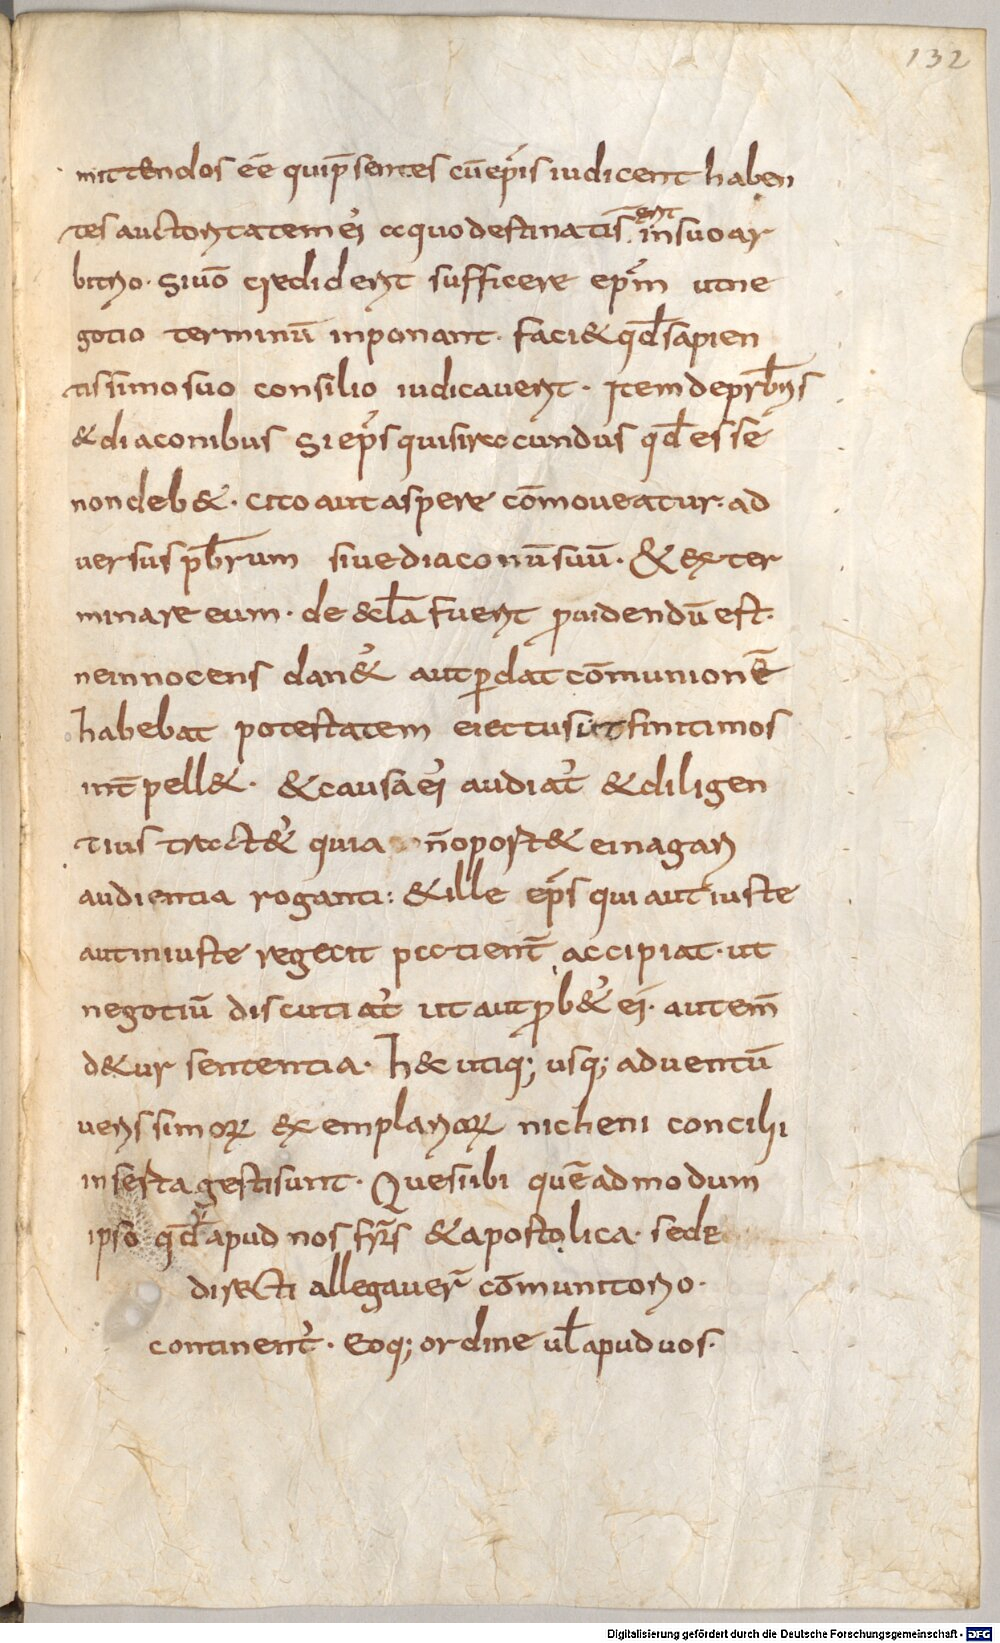 132
mittendos eē quip̄sentes cū ep̄is iudicent haben
tes auctoritatem ei; a quo destinatis. erit in suo ar
bitrio. Siuō crediderit sufficere ep̄m utne
gotio terminū inponant. faci& qd̄ sapien
tissimo suo consilio iudicauerit. Item de prb̄ris
& diaconibus si ep̄s quis iracundus qd̄ esse
non deb&. cito aut aspere cōmoueatur. ad
uersus p̄brum siue diaconū suū. & exter
minare eum. de æcl̄a fuerit ꝓuidendū est.
ne innocens dan& aut ꝑdat cōmunionē
habebat potestatem eiectus ut finitimos
int̄pell&. & causa ei; audiat̄ & diligen
tius tract& quia n̄ oport& ei nagari
audientia roganti: & ille ep̄s qui aut iuste
aut iniuste regecit patient̄ accipiat. ut
negotiū discutiat̄ ut aut ꝓb& ei;. aut em̄
d&ur sententia. h& utiq; usq; aduentū
uerissimoꝝ exemplarioꝝ nicheni concilii
inserta gestis sunt. Que sūbi quēadmodum
ipso qd̄ apud nos fr̄s & apostolica. sede
directi allegauer̄ cōmunitorio.
continent̄. Eoq; ordine ul̄ apud uos.
Digitalisierung gefördert durch die Deutsche Forschungsgemeinschaft - DFG